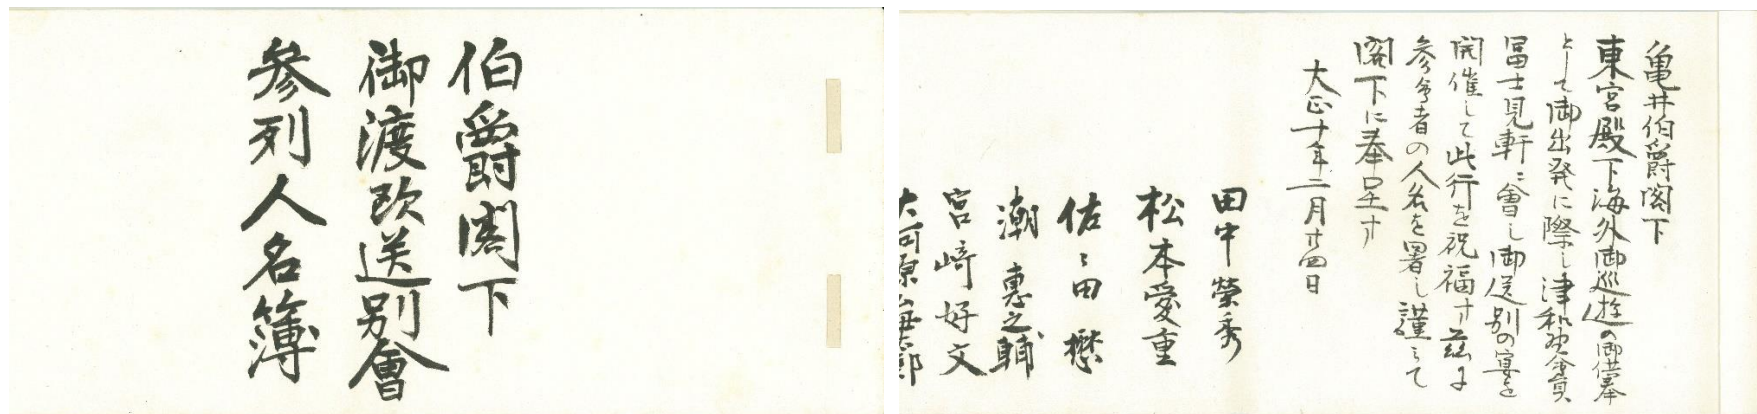 伯爵閣下
御渡欧送別會
參列人名簿
亀井伯爵閣下
東宮殿下海外御巡遊の御供奉
として御出発に際し津和野會員
冨士見軒に會し御送別の宴を
開催して此行を祝福す茲に
参會者の人名を署し謹みて
閣下に奉呈す
大正十年二月廿四日
田中榮秀
松本愛重
佐々田懋
潮惠之輔
宮﨑好文
大河原